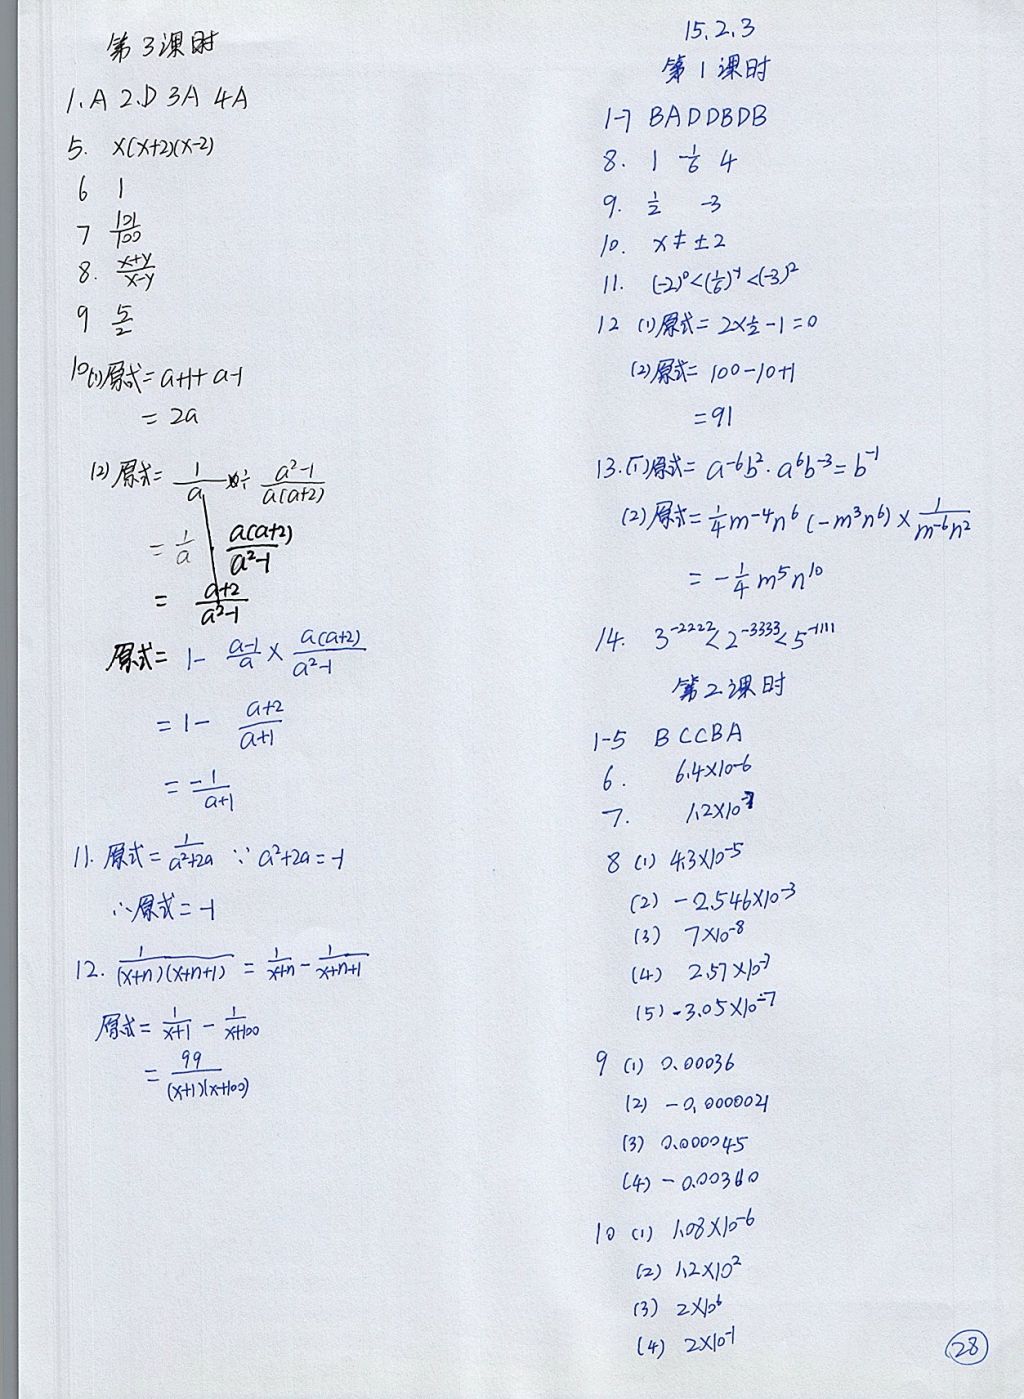 第3课时
1.A 2.D 3A 4A
5. x(x+2)(x-2)
6 1
7 101/100
8. (x+y)/(x-y)
9 5/2
10(1)原式=a+1+a-1
=2a
(2)原式= 1/a ÷ (a²-1)/(a(a+2))
= 1/a · a(a+2)/(a²-1)
= (a+2)/(a²-1)
原式= 1- (a-1)/a × a(a+2)/(a²-1)
=1- (a+2)/(a+1)
= -1/(a+1)
11. 原式= 1/(a²+2a) ∵ a²+2a=-1
∴原式=-1
12. 1/((x+n)(x+n+1)) = 1/(x+n) - 1/(x+n+1)
原式= 1/(x+1) - 1/(x+100)
= 99/((x+1)(x+100))
15.2.3
第1课时
1-7 BADDBDB
8. 1 1/6 4
9. 1/2 -3
10. x≠±2
11. (-2)⁰<(1/6)⁻¹<(-3)²
12 (1)原式=2×1/2-1=0
(2)原式=100-10+1
=91
13.(1)原式=a⁻⁶b²·a⁶b⁻³=b⁻¹
(2)原式=1/4m⁻⁴n⁶(-m³n⁶)×1/(m⁻⁶n²)
=-1/4m⁵n¹⁰
14. 3⁻²²²²<2⁻³³³³<5⁻¹¹¹¹
第2课时
1-5 BCCBA
6. 6.4×10⁻⁶
7. 1.2×10⁻⁷
8 (1) 4.3×10⁻⁵
(2) -2.546×10⁻³
(3) 7×10⁻⁸
(4) 2.57×10⁻⁷
(5) -3.05×10⁻⁷
9 (1) 0.00036
(2) -0.0000021
(3) 0.000045
(4) -0.00360
10 (1) 1.08×10⁻⁶
(2) 1.2×10²
(3) 2×10⁶
(4) 2×10⁻¹
28